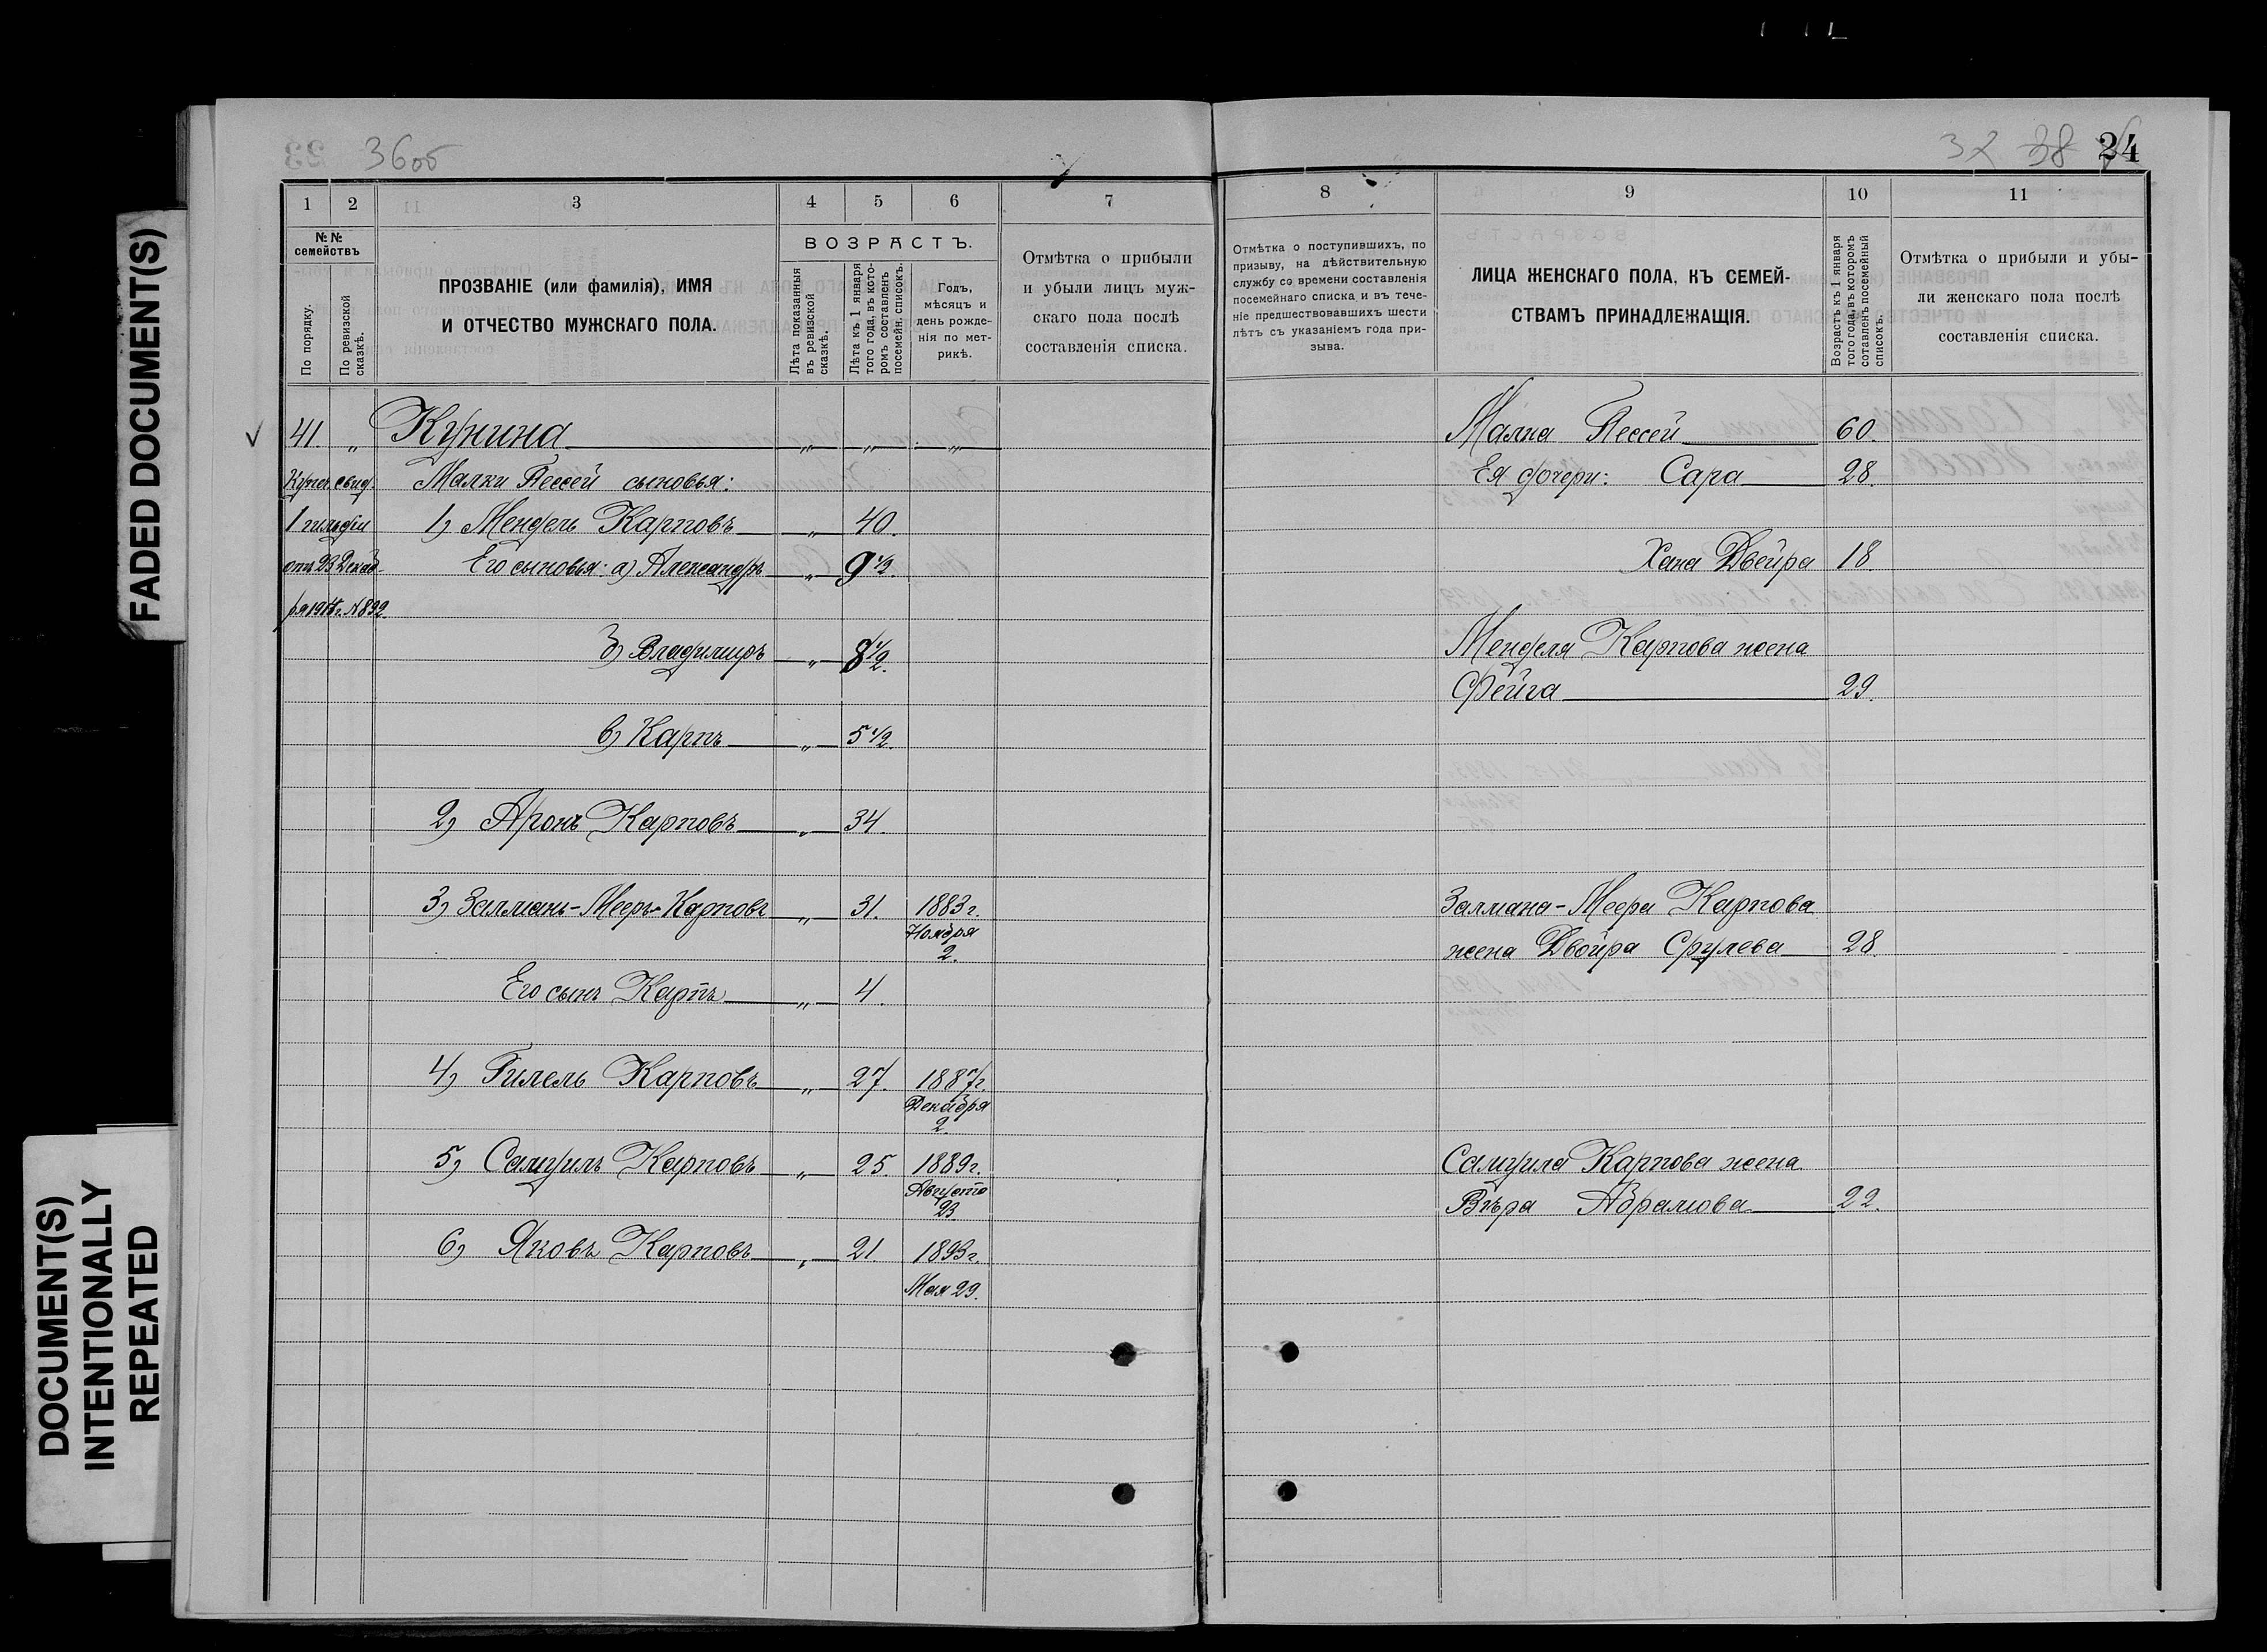 FADED DOCUMENT(S)
DOCUMENT(S)
INTENTIONALLY
REPEATED
36об
37 38 24
1 2 3 4 5 6 7
№ №
семействъ
По порядку.
По ревизской
сказкѣ.
ПРОЗВАНІЕ (или фамилія), ИМЯ
И ОТЧЕСТВО МУЖСКАГО ПОЛА.
ВОЗРАСТЪ.
Лѣта показанныя
въ ревизской
сказкѣ.
Лѣта къ 1 января
того года, въ кото-
ромъ составленъ
посемейн. списокъ.
Годъ,
мѣсяцъ и
день рожде-
нія по мет-
рикѣ.
Отмѣтка о прибыли
и убыли лицъ муж-
скаго пола послѣ
составленія списка.
41 „ Кунина „ „ „
Купеч. свид. Малки Пессей сыновья:
1 гильдіи 1) Мендель Карповъ „ 40.
отъ 23 Декаб- Его сыновья: а) Александръ „ 9 1/2.
ря 1914 г. №892.
б) Владимиръ „ 8 1/2.
в) Карпъ „ 5 1/2.
2) Аронъ Карповъ „ 34.
3) Залманъ-Мееръ Карповъ „ 31. 1883 г.
Ноября
2.
Его сынъ Карпъ „ 4.
4) Гилель Карповъ „ 27. 1887 г.
Декабря
2
5) Самуилъ Карповъ „ 25 1889 г.
Августа
23
6) Яковъ Карповъ „ 21. 1893 г.
Мая 29.
8 9 10 11
Отмѣтка о поступившихъ, по
призыву, на дѣйствительную
службу со времени составленія
посемейнаго списка и въ тече-
ніе предшествовавшихъ шести
лѣтъ съ указаніемъ года при-
зыва.
ЛИЦА ЖЕНСКАГО ПОЛА, КЪ СЕМЕЙ-
СТВАМЪ ПРИНАДЛЕЖАЩІЯ.
Возрастъ къ 1 января
того года, въ которомъ
сотавленъ посемейный
списокъ.
Отмѣтка о прибыли и убы-
ли женскаго пола послѣ
составленія списка.
Малка Пессей 60.
Ея дочери: Сара 28.
Хана Двейра 18.
Менделя Карпова жена
Фейга 29.
Залмана-Меера Карпова
жена Двойра Срулева 28.
Самуила Карпова жена
Вѣра Абрамова 22.